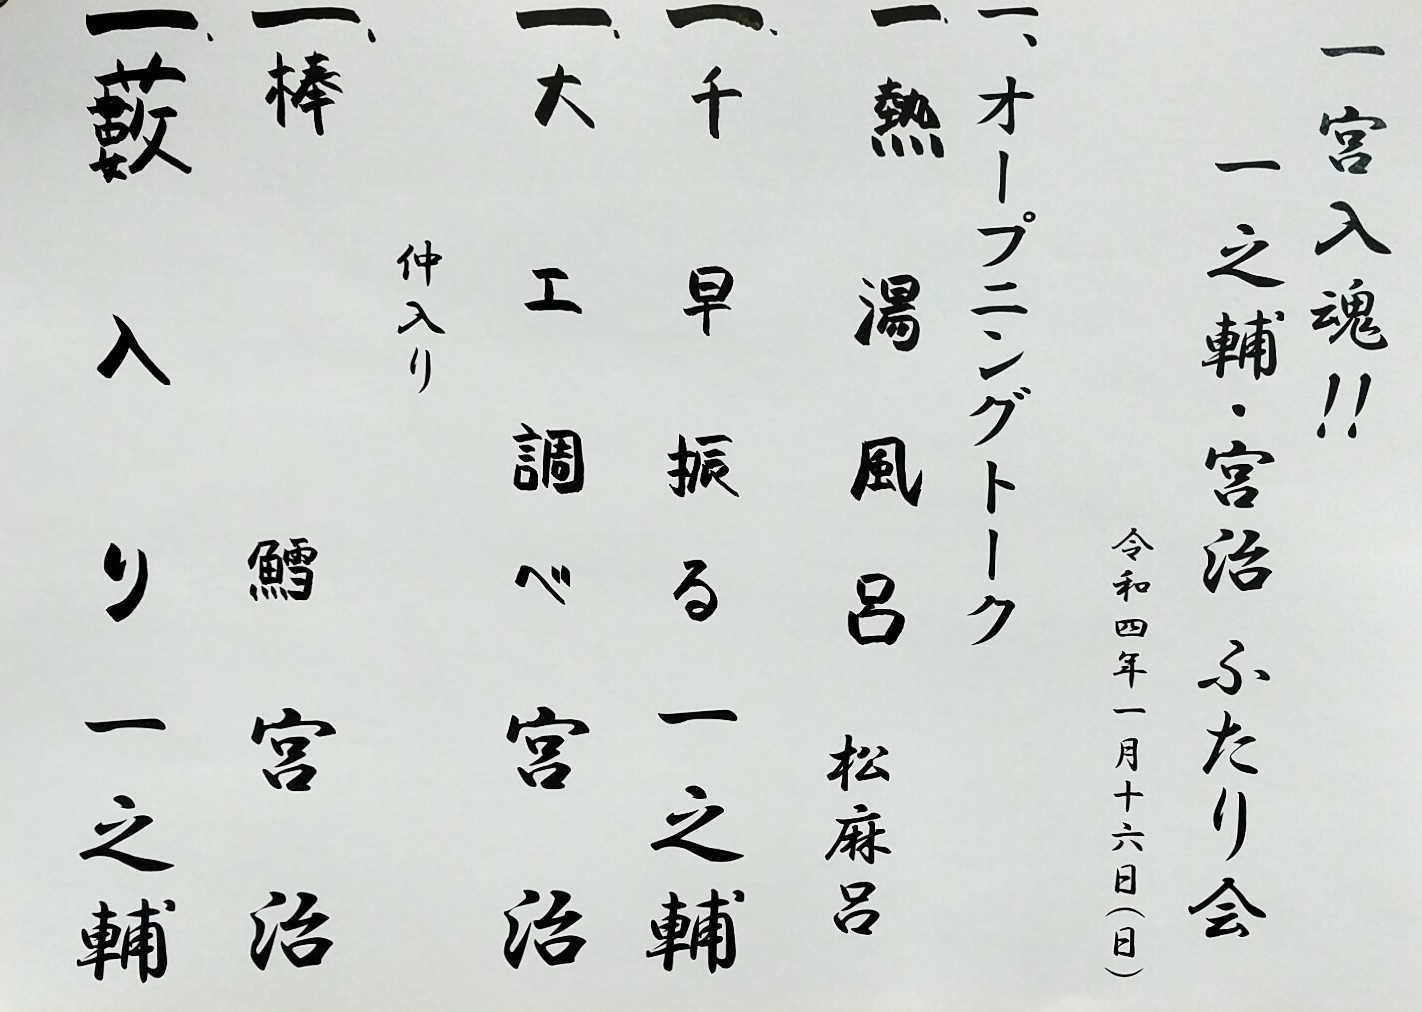 一宮入魂!!
一之輔・宮治 ふたり会
令和四年一月十六日(日)
一、オープニングトーク
一、熱湯風呂 松麻呂
一、千早振る 一之輔
一、大工調べ 宮治
仲入り
一、棒鱈 宮治
一、藪入り 一之輔